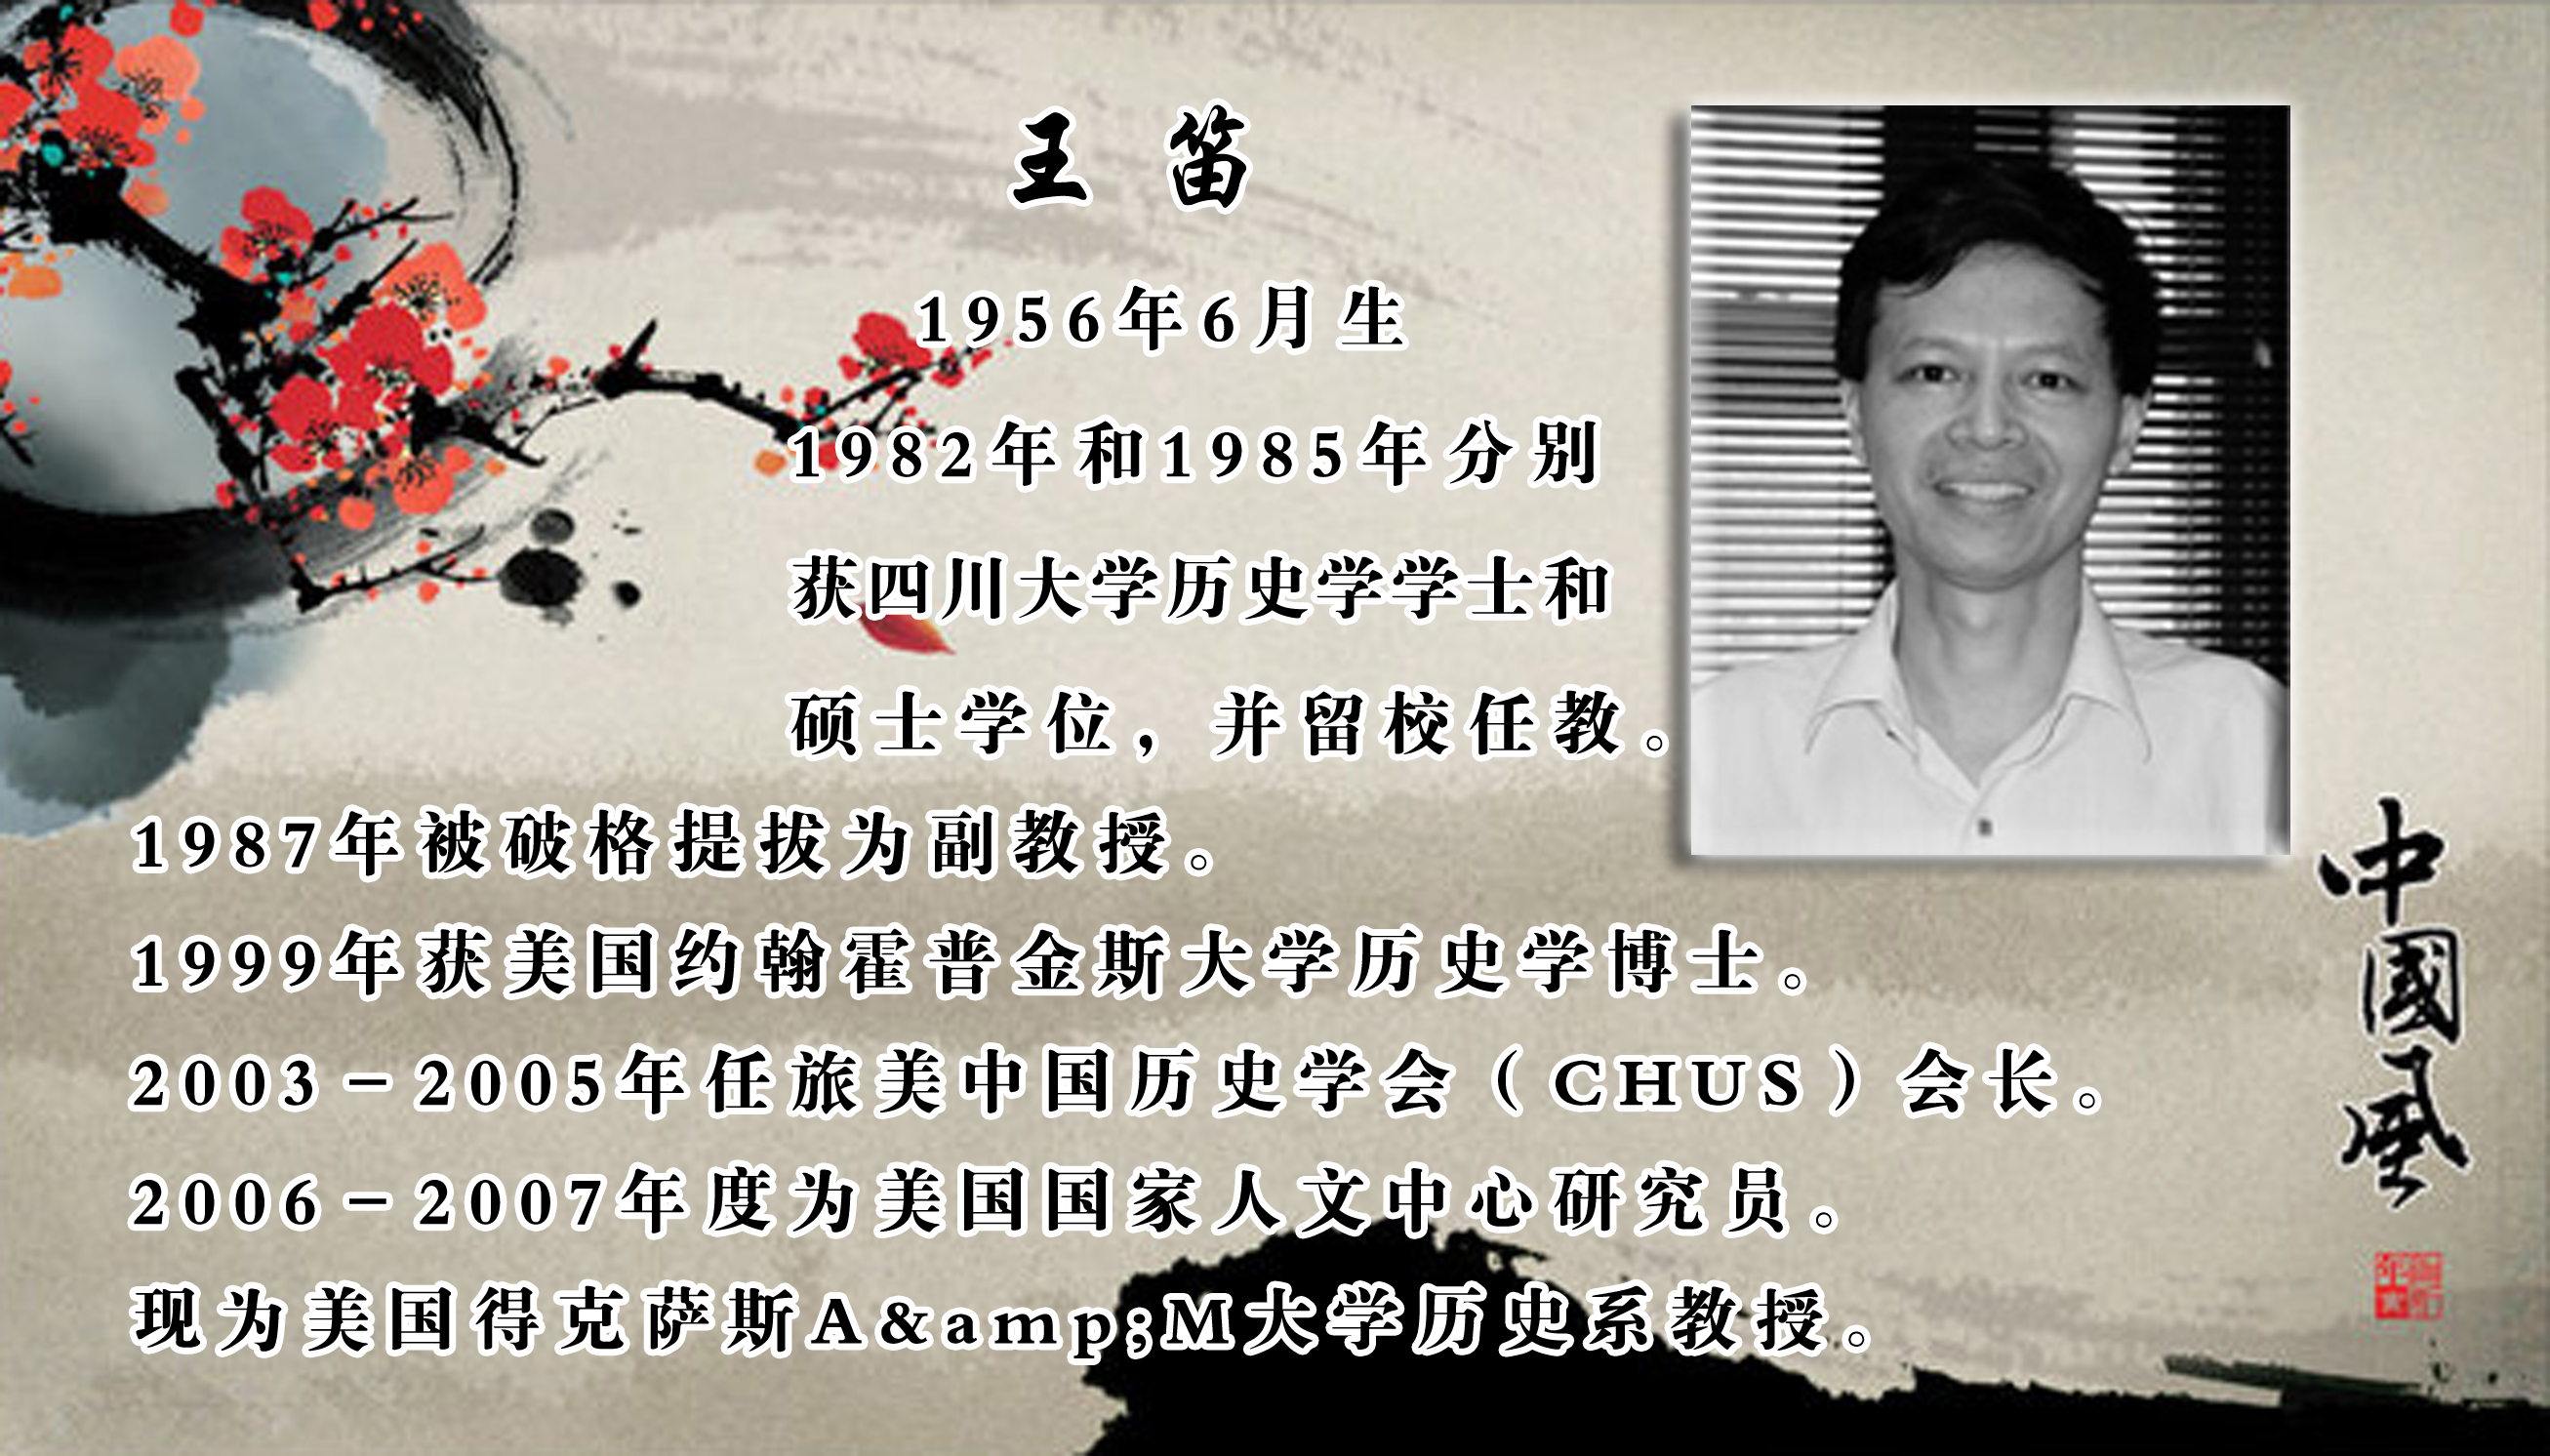 王 笛
1956年6月生
1982年和1985年分别
获四川大学历史学学士和
硕士学位，并留校任教。
1987年被破格提拔为副教授。
1999年获美国约翰霍普金斯大学历史学博士。
2003－2005年任旅美中国历史学会（CHUS）会长。
2006－2007年度为美国国家人文中心研究员。
现为美国得克萨斯A&amp;M大学历史系教授。
中國風